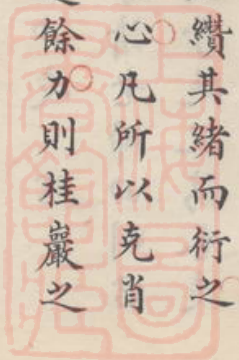 纘其緒而衍之
心凡所以克肖
餘力則桂巖之